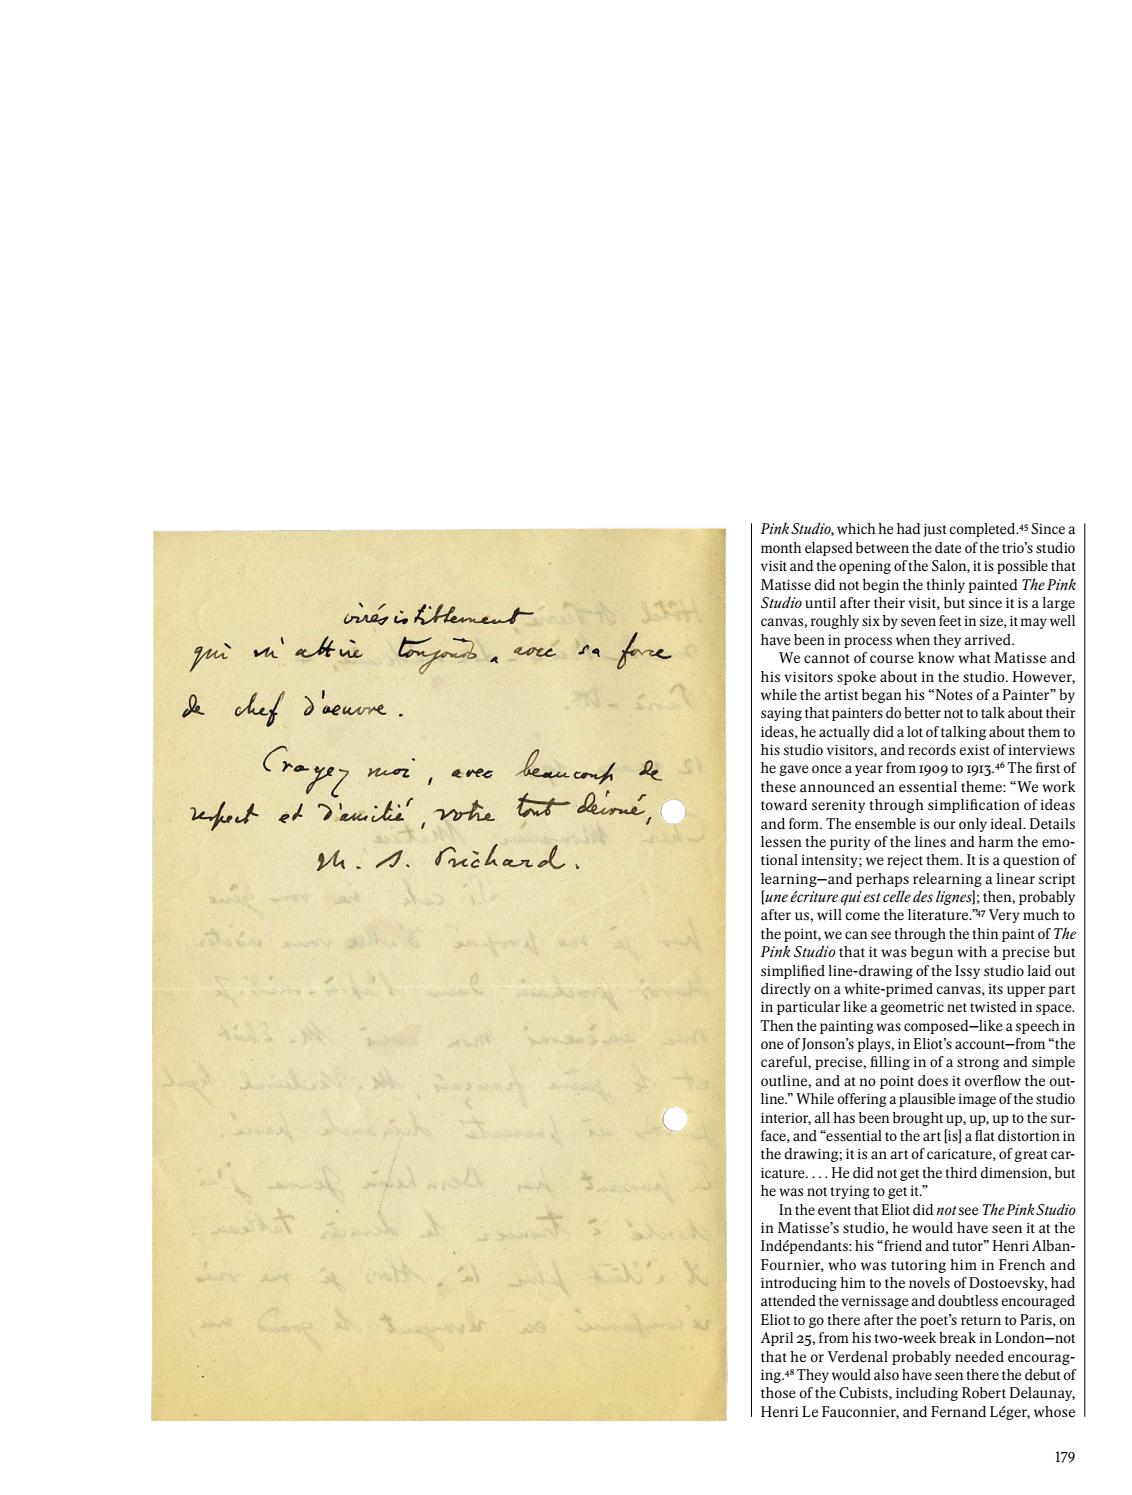 irrésistiblement
qui m'attire toujours, avec sa force
de chef d'oeuvre.
Croyez moi, avec beaucoup de
respect et d'amitié, votre tout dévoué,
M. S. Prichard.
Pink Studio, which he had just completed.⁴⁵ Since a
month elapsed between the date of the trio's studio
visit and the opening of the Salon, it is possible that
Matisse did not begin the thinly painted The Pink
Studio until after their visit, but since it is a large
canvas, roughly six by seven feet in size, it may well
have been in process when they arrived.
We cannot of course know what Matisse and
his visitors spoke about in the studio. However,
while the artist began his “Notes of a Painter” by
saying that painters do better not to talk about their
ideas, he actually did a lot of talking about them to
his studio visitors, and records exist of interviews
he gave once a year from 1909 to 1913.⁴⁶ The first of
these announced an essential theme: “We work
toward serenity through simplification of ideas
and form. The ensemble is our only ideal. Details
lessen the purity of the lines and harm the emo-
tional intensity; we reject them. It is a question of
learning—and perhaps relearning a linear script
[une écriture qui est celle des lignes]; then, probably
after us, will come the literature.”⁴⁷ Very much to
the point, we can see through the thin paint of The
Pink Studio that it was begun with a precise but
simplified line-drawing of the Issy studio laid out
directly on a white-primed canvas, its upper part
in particular like a geometric net twisted in space.
Then the painting was composed—like a speech in
one of Jonson's plays, in Eliot's account—from “the
careful, precise, filling in of a strong and simple
outline, and at no point does it overflow the out-
line.” While offering a plausible image of the studio
interior, all has been brought up, up, up to the sur-
face, and “essential to the art [is] a flat distortion in
the drawing; it is an art of caricature, of great car-
icature. . . . He did not get the third dimension, but
he was not trying to get it.”
In the event that Eliot did not see The Pink Studio
in Matisse's studio, he would have seen it at the
Indépendants: his “friend and tutor” Henri Alban-
Fournier, who was tutoring him in French and
introducing him to the novels of Dostoevsky, had
attended the vernissage and doubtless encouraged
Eliot to go there after the poet's return to Paris, on
April 25, from his two-week break in London—not
that he or Verdenal probably needed encourag-
ing.⁴⁸ They would also have seen there the debut of
those of the Cubists, including Robert Delaunay,
Henri Le Fauconnier, and Fernand Léger, whose
179